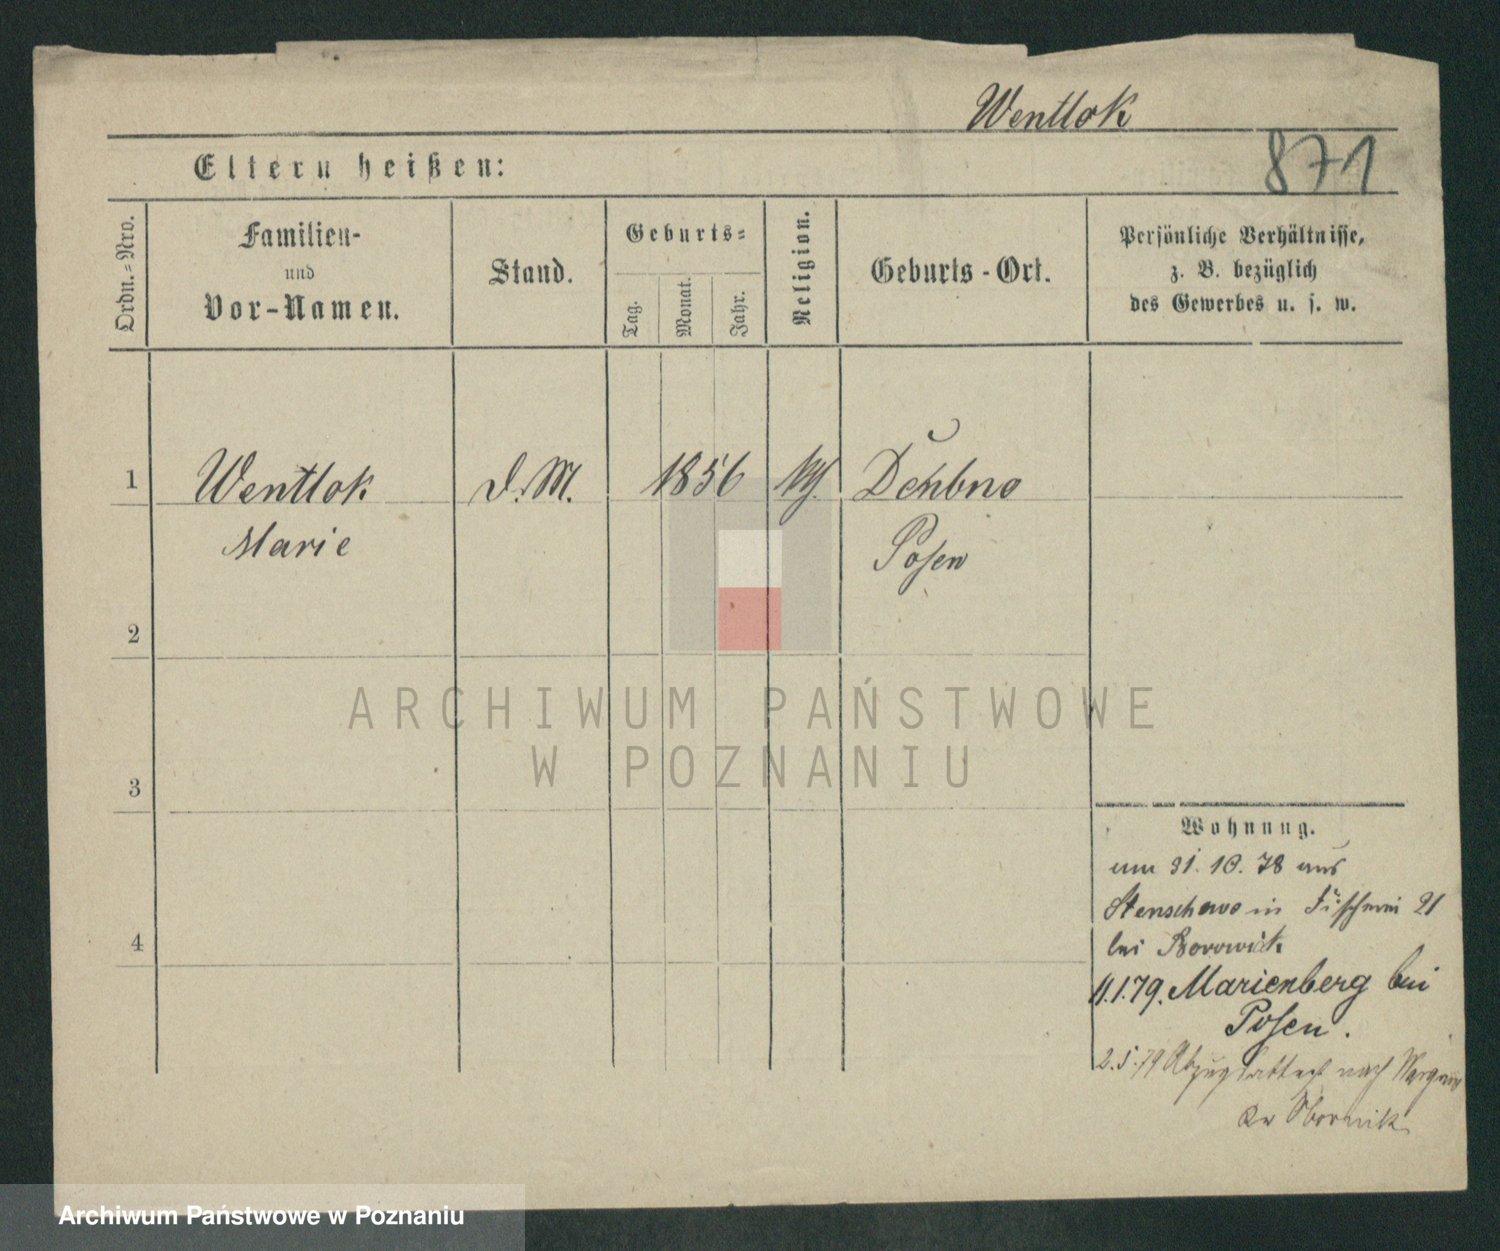 Wentlok
871
Eltern heißen:
Ordn.=Nro.
Familien-
und
Vor-Namen.
Stand.
Geburts=
Tag.
Monat.
Jahr.
Religion.
Geburts-Ort.
Persönliche Verhältnisse,
z. B. bezüglich
des Gewerbes u. s. w.
1
Wentlok
Marie
D.M.
1856
Posen
2
3
4
ARCHIWUM PAŃSTWOWE
W POZNANIU
Wohnung.
um 31.10.78 aus
Stenschewo in Fischerei 21
bei
11.1.79. Marienberg bei
Posen.
2.5.79 Abzugsattest nach
Obornik
Archiwum Państwowe w Poznaniu